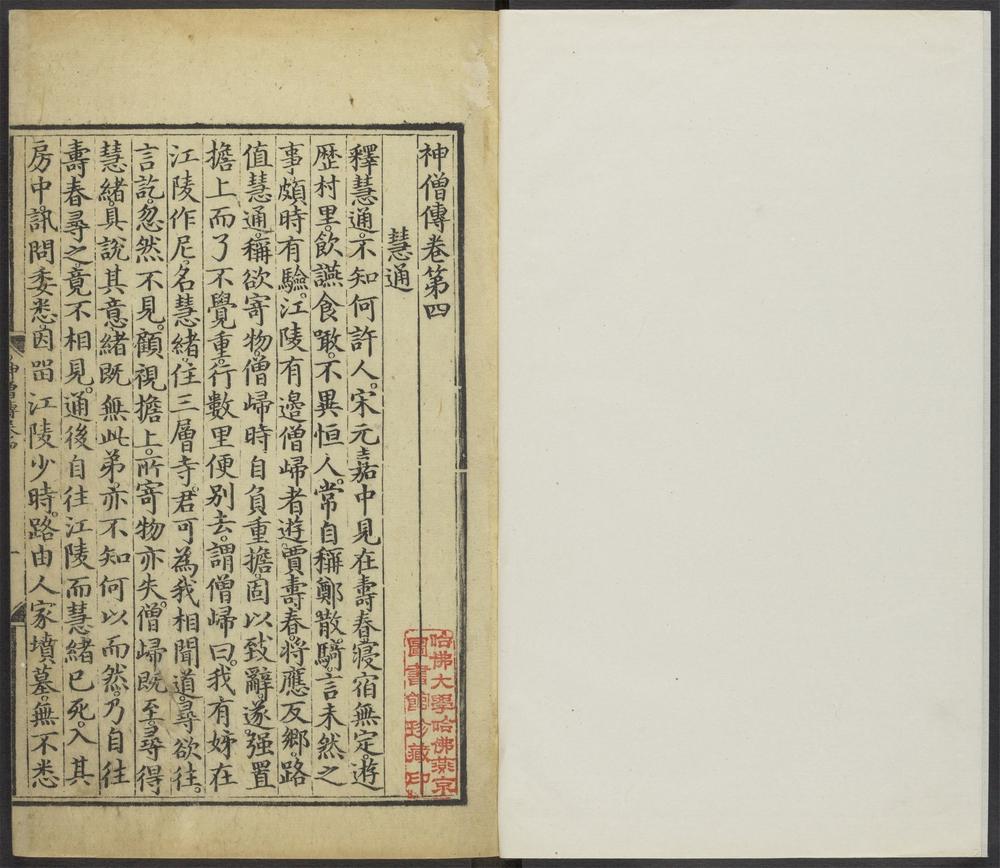 神僧傳卷第四
慧通
釋慧通。不知何許人。宋元嘉中見在壽春。寢宿無定。遊
歷村里。飲讌食噉。不異恒人。常自稱鄭散騎。言未然之
事。頗時有驗。江陵有邊僧歸者。遊賈壽春。將應反鄉。路
值慧通。稱欲寄物。僧歸時自負重擔。固以致辭。遂強置
擔上。而了不覺重。行數里便別去。謂僧歸曰。我有姊在
江陵作尼。名慧緒。住三層寺。君可為我相聞道。尋欲往。
言訖。忽然不見。顧視擔上。所寄物亦失。僧歸既至。尋得
慧緒。具說其意。緒既無此弟。亦不知何以而然。乃自往
壽春尋之。竟不相見。通後自往江陵。而慧緒已死。入其
房中。訊問委悉。因留江陵少時。路由人家墳墓。無不悉
哈佛大學哈佛燕京
圖書館珍藏印